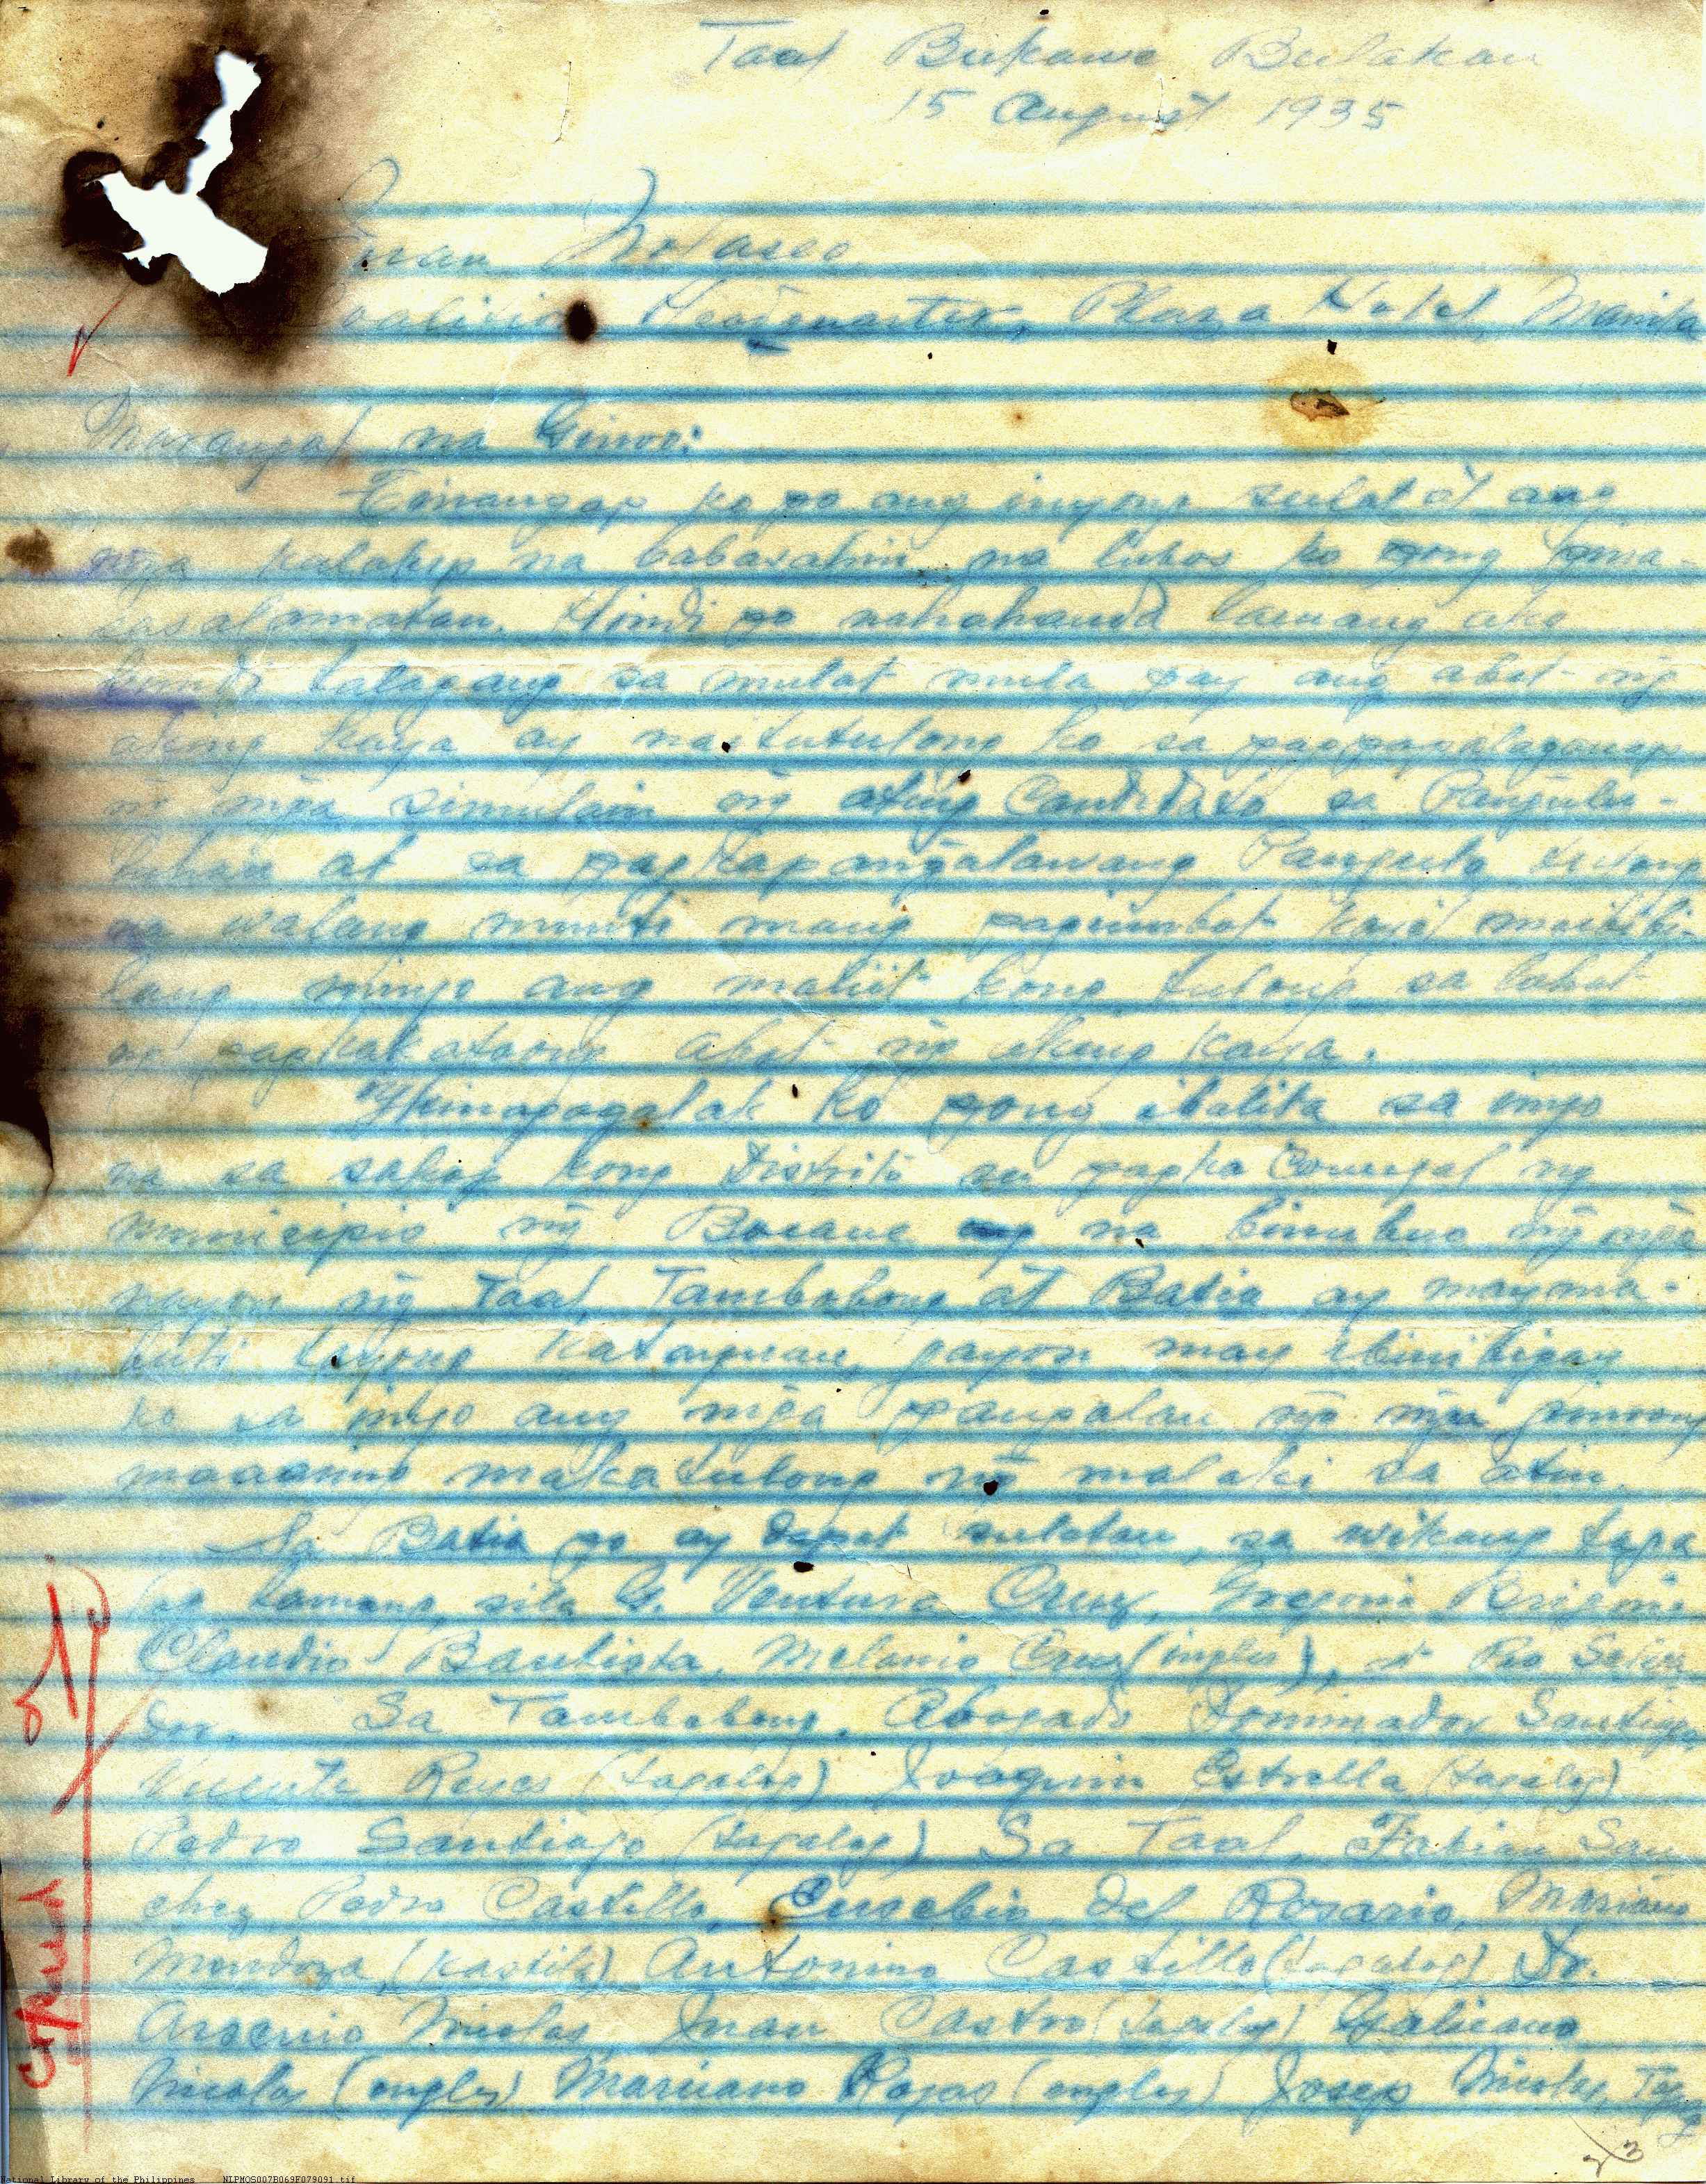 Taal Bukawe Bulakan
15 August 1935
Juan Nolasco
Coalition Headquarter, Plaza Hotel, Manila
Marangal na Ginoo:
Tinangap ko po ang inyong sulat at ang
mga kalakip na babasahin na lubos ko pong pina-
sasalamatan. Hindi po nahahanda lamang ako
kundi talagang sa mulat mula pay ang abot ng
aking kaya ay naitutulong ko sa pagpapalaganap
ng mga simulain ng ating Candidato sa Pangulu-
han at sa pagkapangalawang Pangulo
na walang munti mang pagiimbot kayat maibibi-
lang ninyo ang maliit kong tulong sa lahat
ng pagkakataong abot ng aking kaya.
Ikinagagalak ko pong ibalita sa inyo
na sa sakop kong Distrito sa pagka Concejal ng
municipio ng Bocaue na binubuo ng mga
nayon ng Taal, Tambobong at Batia ay mayma-
buti tayong katayuan, gayon may ibinibigay
ko sa inyo ang mga pangalan ng mga ginoong
maaaring makatulong ng malaki sa atin.
Sa Batia po ay dapat sulatan, sa wikang taga
log lamang, sila G. Ventura Cruz, Gregorio
Claudio Bautista, Melanio Cruz (ingles), Pio
Sa Tambobong, Abogado Dominador Santiago,
Vicente Reyes (tagalog) Joaquin Estrella (tagalog)
Pedro Santiago (tagalog) Sa Taal, Fabian San
chez Pedro Castillo, Eusebio del Rosario, Mariano
Mendoza (kastila) Antonino Castillo (tagalog) Dr.
Arsenio Nicolas, Juan Castro (tagalog) Galicano
Nicolas (ingles) Marciano Rojas (ingles) Josep Nicolas,
National Library of the Philippines NLPMOS007B069F079091.tif